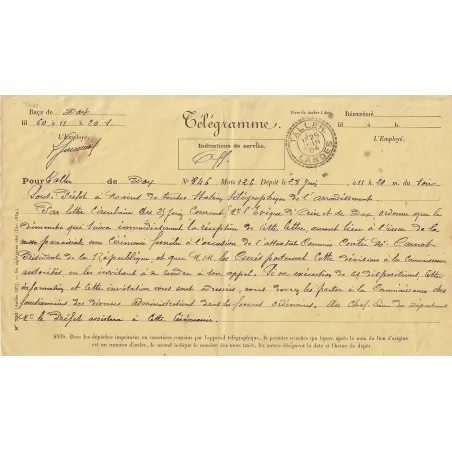 Reçu de Dax
Télégramme.
Timbre à date
Réexpédié
fil à h.
L'Employé,
L'Employé,
TALLER
29 JUIN 94
LANDES
Indications de service.
Off.
Pour Taller de Dax N° 846 Mots 126 Dépôt le 28 Juin à 11 h. 20 m. du soir
Sous Préfet à Maires de toutes Station télégraphique de l'arrondissement.
Par lettre Circulaire du 27 Juin Courant Mgr l'Evêque d'Aire et de Dax ordonne que le
Dimanche que suivra immédiatement la réception de cette lettre, auront lieu à l'issue de la
messe paroissiale une Cérémonie funèbre à l'occasion de l'attentat Commis Contre Mr Carnot
Président de la République et que M.M. les Curés porteront Cette décision à la Connaissance
autorités, en les invitant à se rendre à son appel. Je en exécution de ces dispositions Cette
information et cette invitation vous sont adressés, vous devrez les porter à la Connaissance des
fonctionnaires des diverses administrations dans les formes ordinaires. Au Chef-lieu du département
Mr le Préfet assistera à Cette Cérémonie.
AVIS. Dans les dépêches imprimées en caractères romains par l'appareil télégraphique, le premier nombre qui figure après le nom du lieu d'origine
est un numéro d'ordre, le second indique le nombre des mots taxés, les autres désignent la date et l'heure de dépôt.